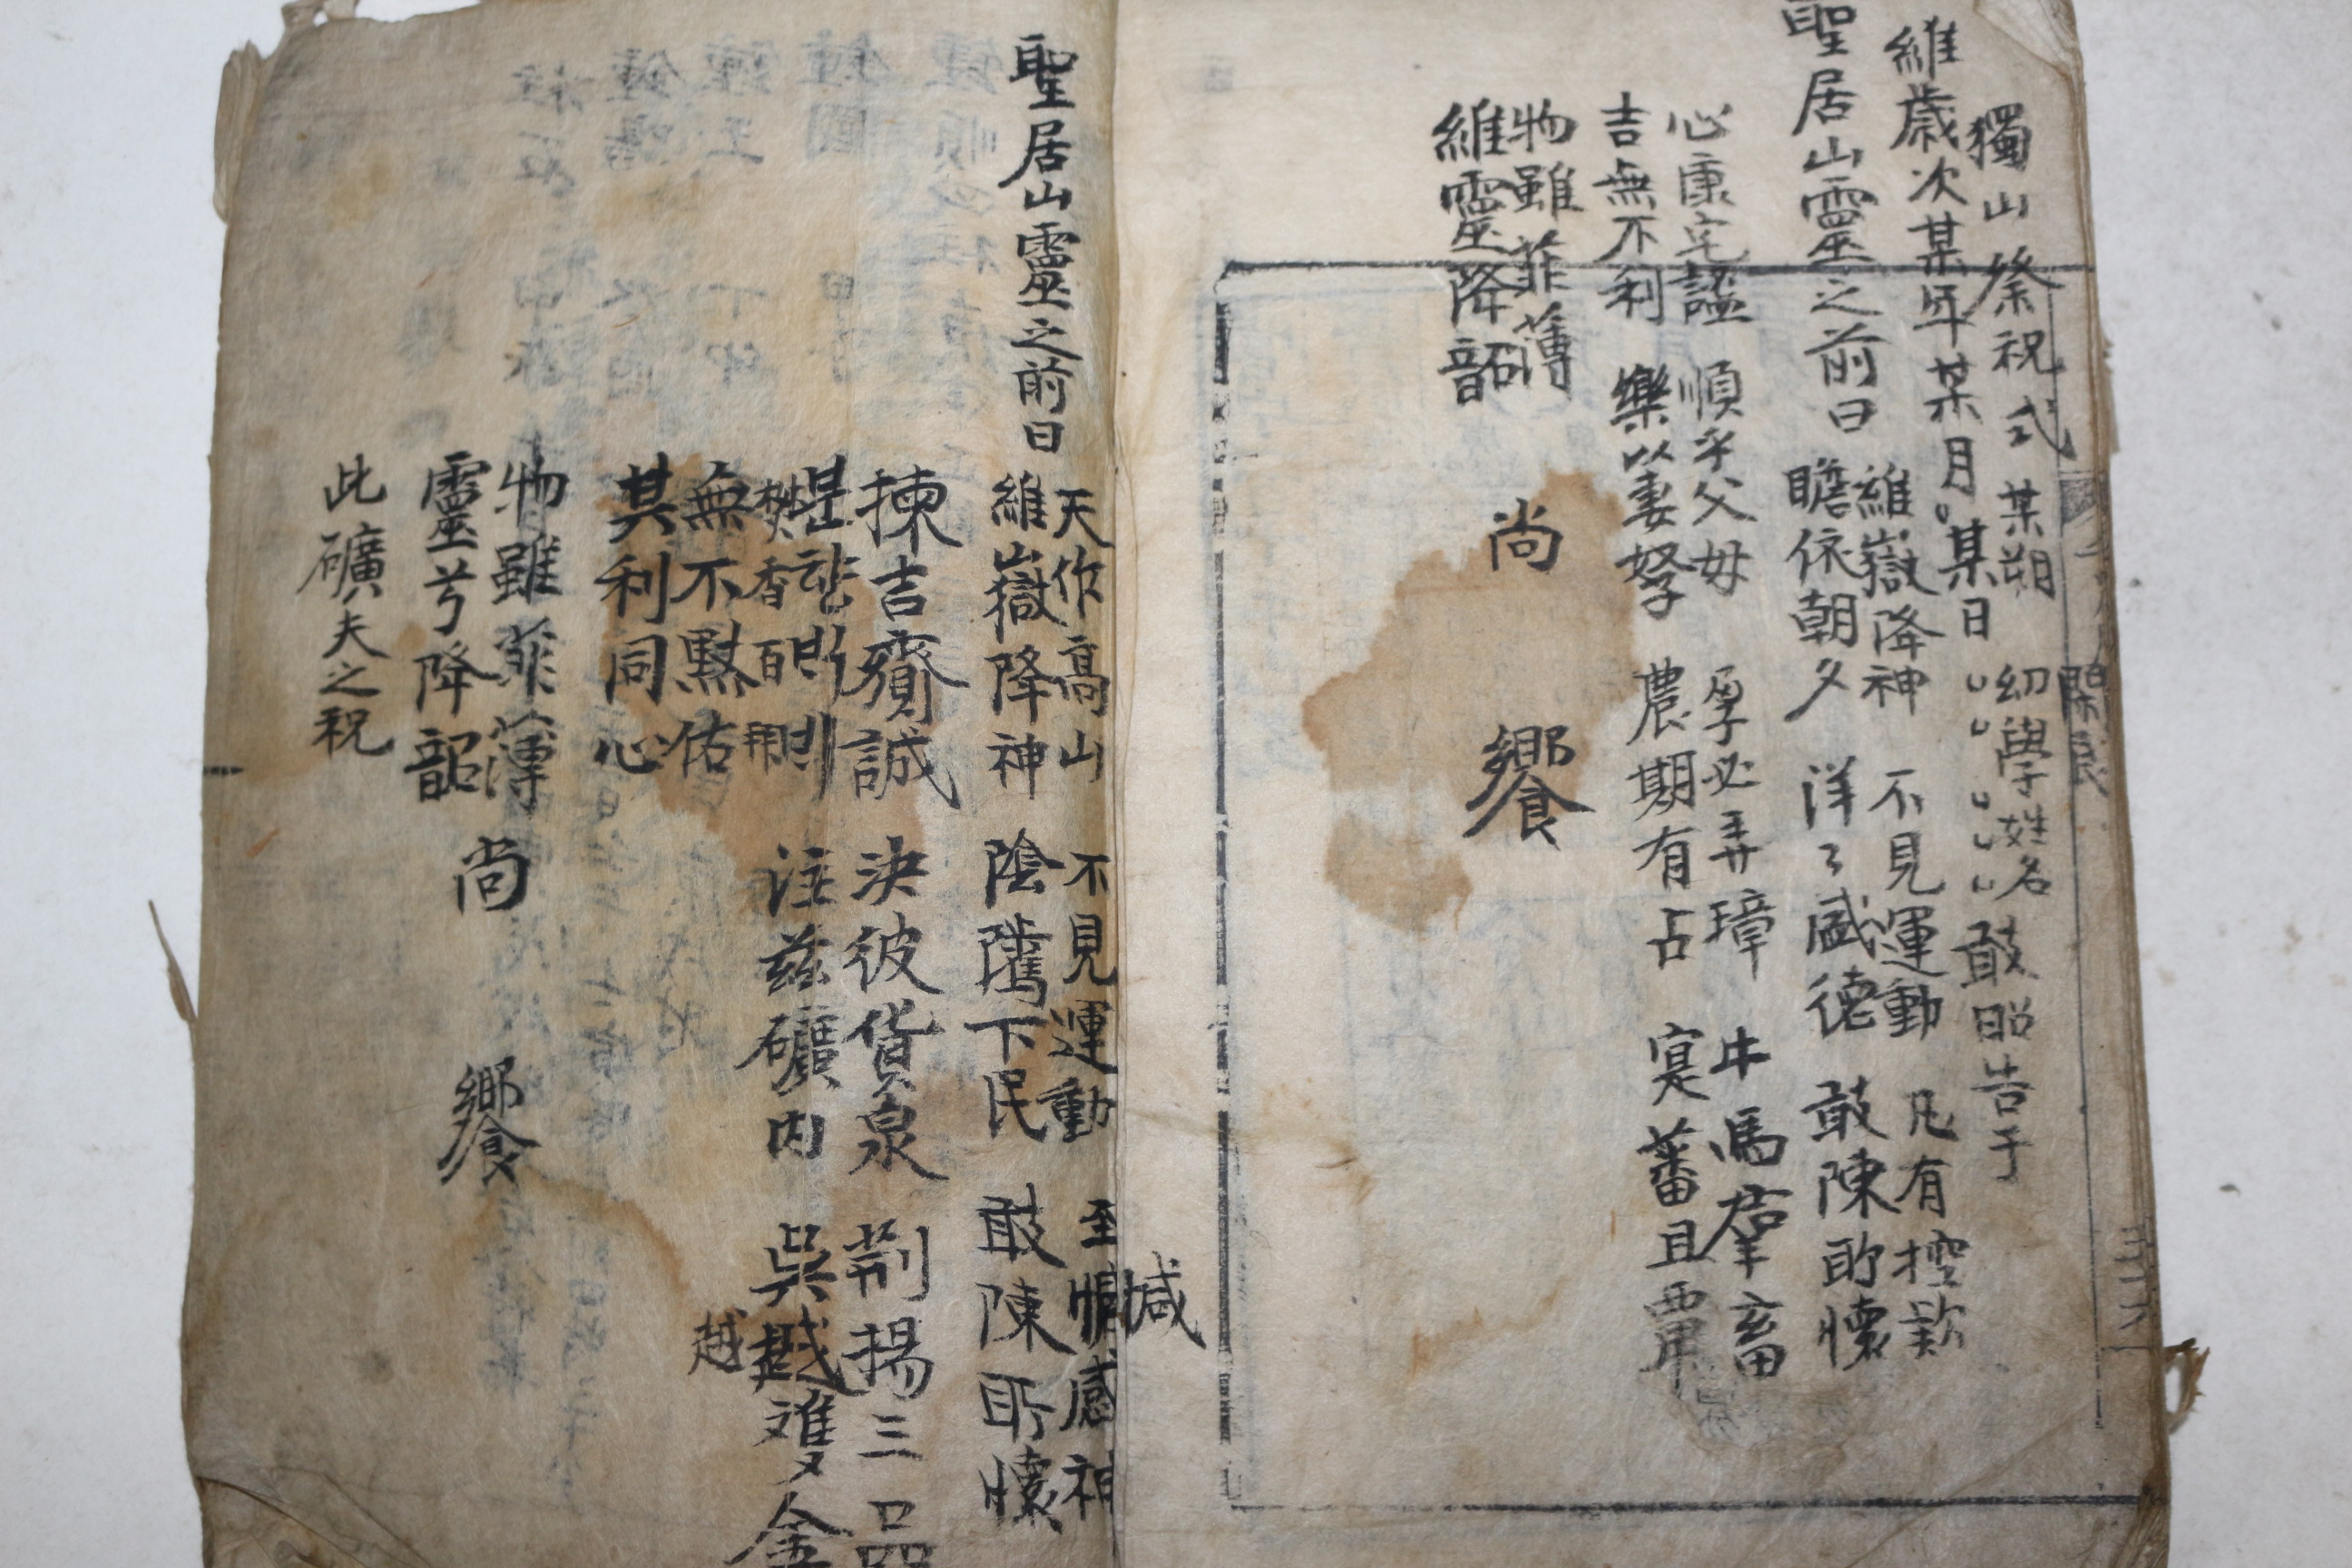 獨山祭祝式 某朔 幼學姓名 敢昭告于
維歲次某年某月 某日
聖居山靈之前曰
維嶽降神 不見運動 凡有控款
瞻依朝夕 洋々盛德 敢陳所懷
心康宅謐 順乎父母 孕必弄璋 牛馬群畜
吉無不利 樂以妻孥 農期有占 寔蕃且
物雖菲薄
維靈降韶
尙 饗
諴
聖居山靈之前曰
天作高山 不見運動 至 感神
維嶽降神 陰隲下民 敢陳所懷
揀吉齎誠 決彼貨泉 荊揚三品
焚香百拜 注玆礦內 吳越雙金
越
無不黙佑
其利同心
物雖菲薄
靈兮降韶
尙 饗
此礦夫之祝